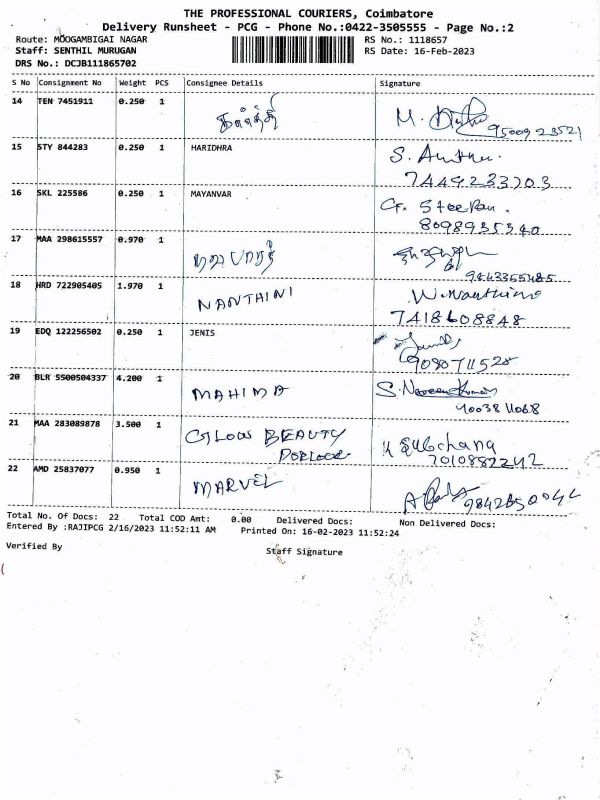 THE PROFESSIONAL COURIERS, Coimbatore
Delivery Runsheet - PCG - Phone No.:0422-3505555 - Page No.:2
Route: MOOGAMBIGAI NAGAR RS No.: 1118657
Staff: SENTHIL MURUGAN RS Date: 16-Feb-2023
DRS No.: DCJB111865702
S No Consignment No Weight PCS Consignee Details Signature
14 TEN 7451911 0.250 1 கார்த்தி M. 9500923521
15 STY 844283 0.250 1 HARIDHRA S.
7449233703
16 SKL 225586 0.250 1 MAYANVAR G. Steepan.
8098935340
17 MAA 298615557 0.970 1
9843355485
18 HRD 722905405 1.970 1 NANTHINI W. Nanthini
7418608848
19 EDQ 122256502 0.250 1 JENIS
9080711528
20 BLR 5500504337 4.200 1 MAHIMA S. Naveen Kumar
21 MAA 283089878 3.500 1 GLOWS BEAUTY
7010882242
22 AMD 25837077 0.950 1 MARVEL A
Total No. Of Docs: 22 Total COD Amt: 0.00 Delivered Docs: Non Delivered Docs:
Entered By :RAJIPCG 2/16/2023 11:52:11 AM Printed On: 16-02-2023 11:52:24
Verified By Staff Signature